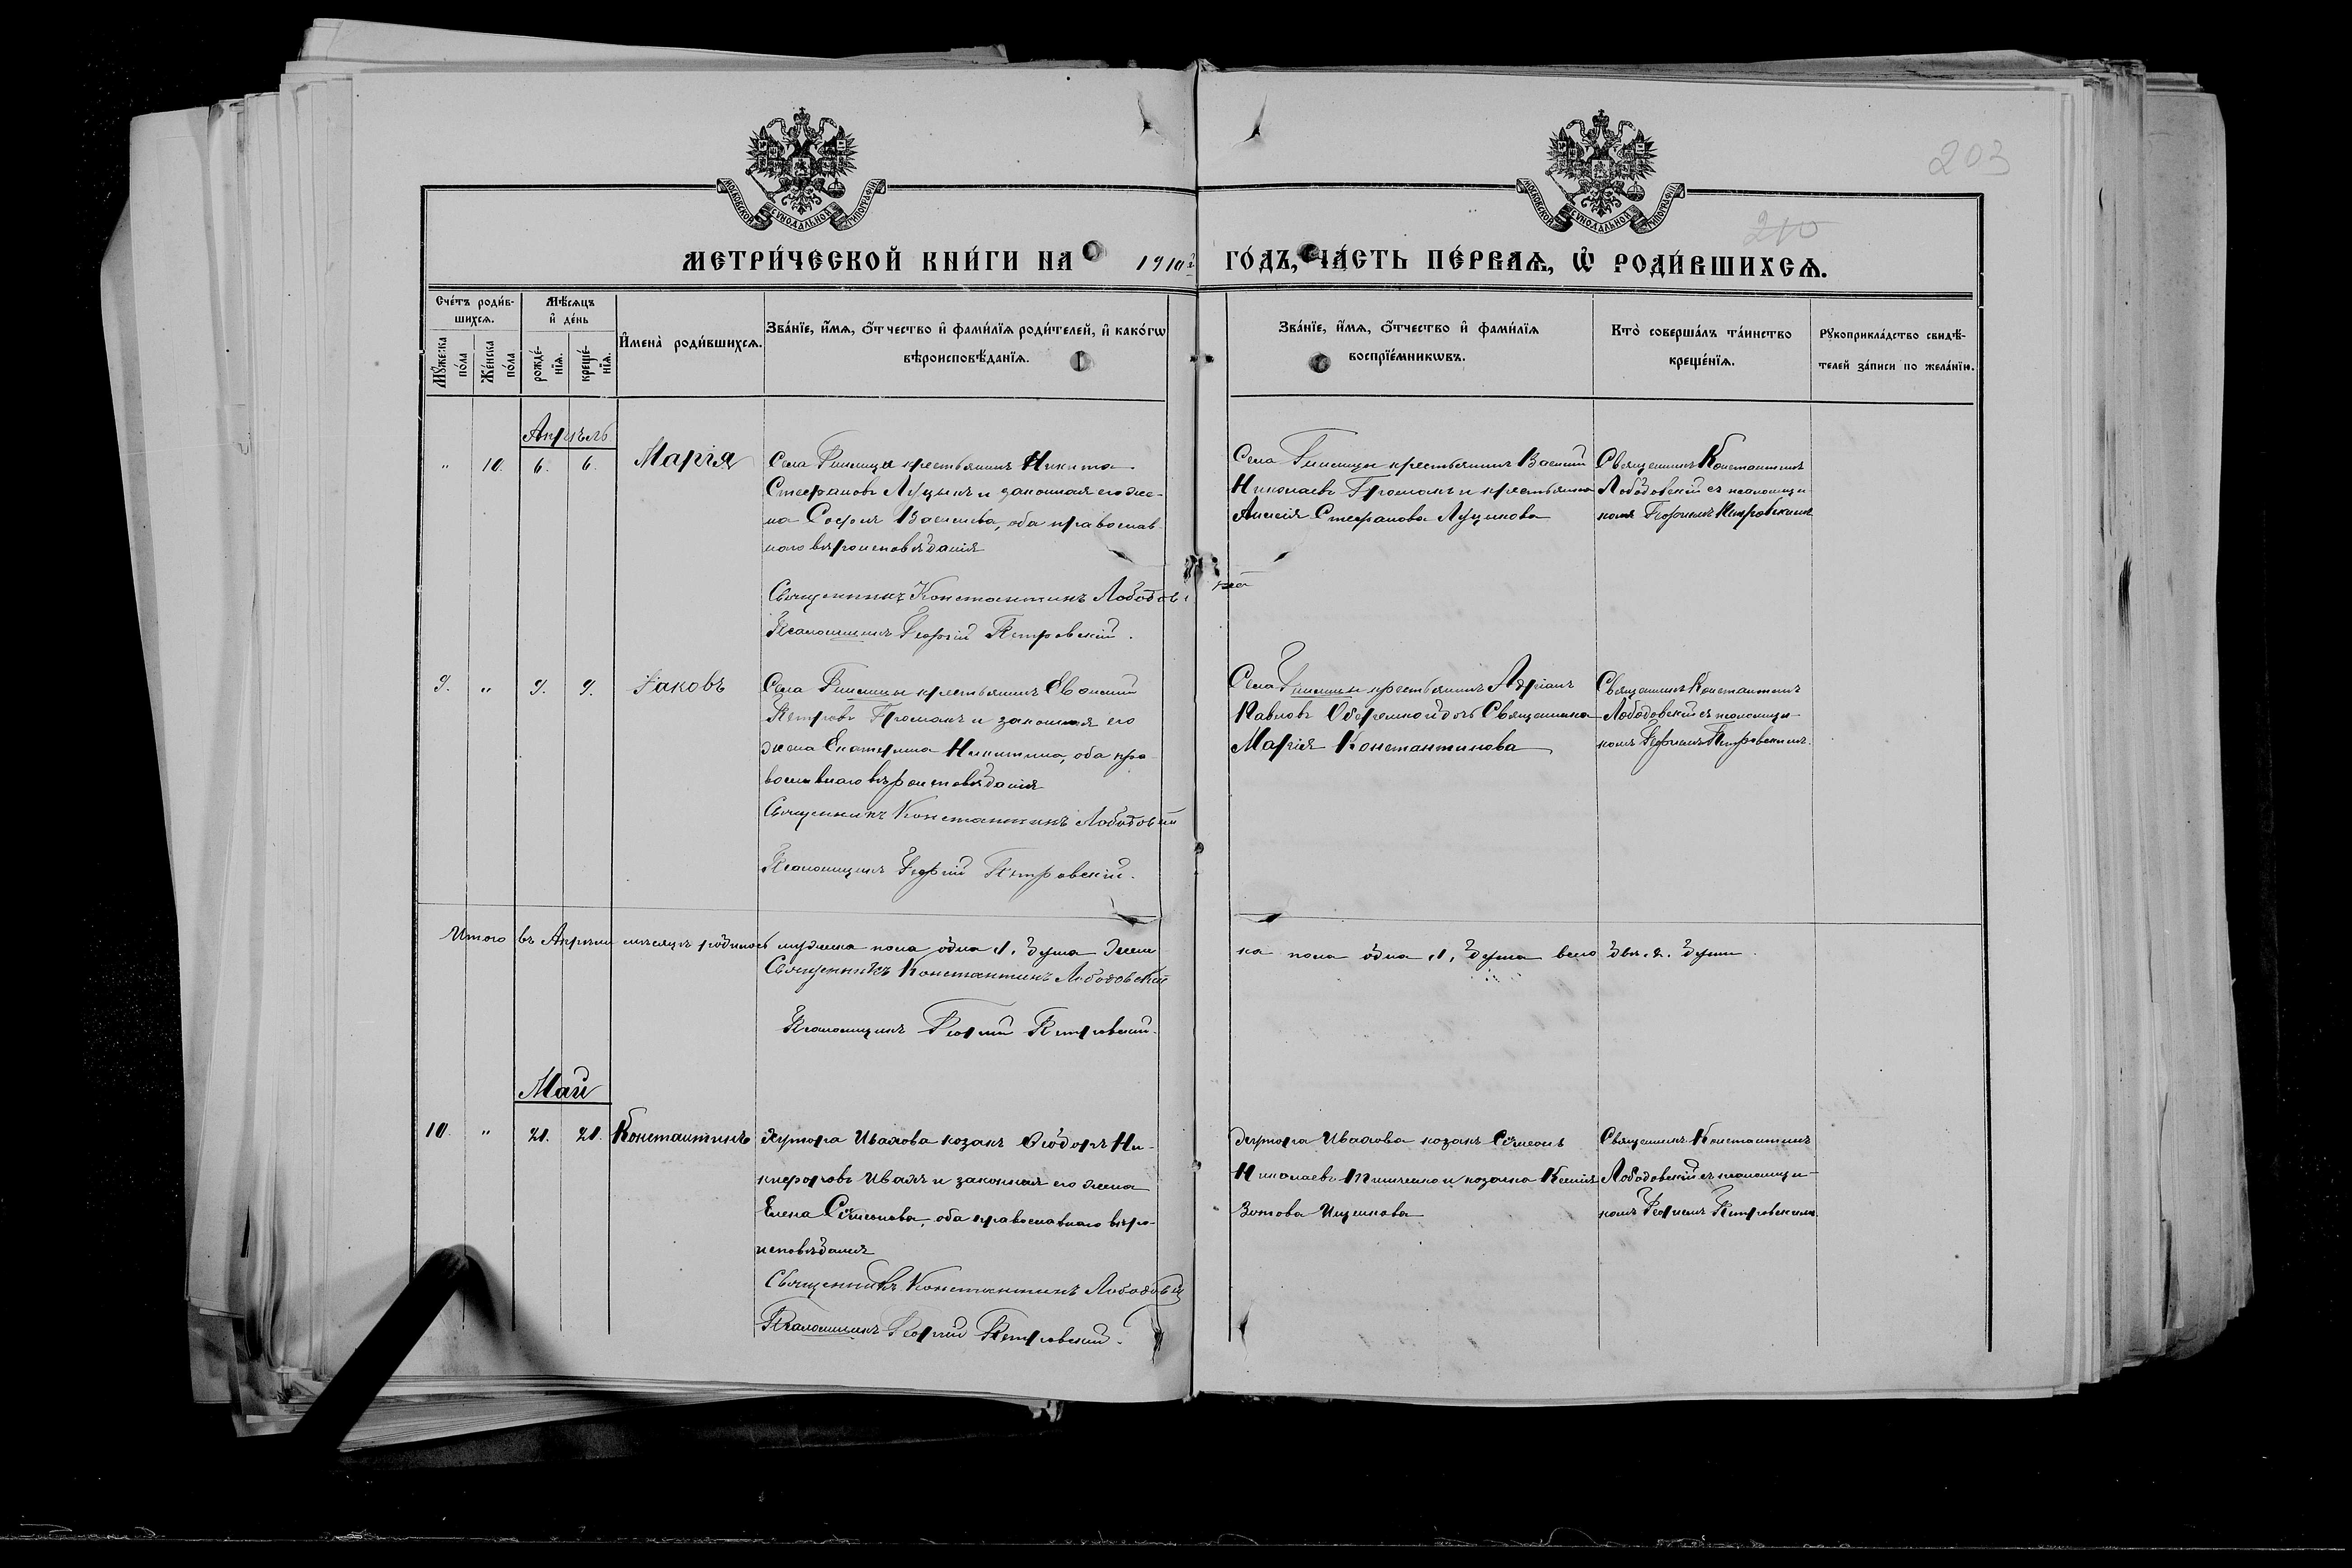 203
210
МОСКОВСКОЙ СѴНОДАЛЬНОЙ ТИПОГРАФІИ
МОСКОВСКОЙ СѴНОДАЛЬНОЙ ТИПОГРАФІИ
МЕТРИ́ЧЕСКОЙ КНИ́ГИ НА 1910 ГО́ДЪ, ЧА́СТЬ ПЕ́РВАѦ, Ѡ҆ РОДИ́ВШИХСѦ.
Сче́тъ роди́в-
шихсѧ.
Мꙋ́жеска по́ла
Же́нска по́ла
Мѣ́сѧцъ
и҆ де́нь
рожде́-
нїѧ.
креще́-
нїѧ.
И҆мена̀ роди́вшихсѧ.
Зва́нїе, и҆́мѧ, ѻ҆́тчество и҆ фами́лїѧ роди́телей, и҆ како́гѡ
вѣроисповѣ́данїѧ.
Зва́нїе, и҆́мѧ, ѻ҆́тчество и҆ фами́лїѧ
воспрїе́мникѡвъ.
Кто̀ соверша́лъ та́инство
креще́нїѧ.
Рꙋкоприкла́дство свидѣ́-
телей за́писи по жела́нїю.
Апрѣль
" 10. 6. 6. Марія
Села крестьянинъ Никита
Стефановъ Луцыкъ и законная его же-
на Софія Васильева, оба православ-
наго вѣроисповѣданія
Священникъ Константинъ Лободовскій
Псаломщикъ Георгій Петровскій.
Села крестьянинъ Василій
Николаевъ Громакъ и крестьянка
Стефанова Луцыкова
Священникъ Константинъ
Лободовскій съ псаломщи-
комъ Георгіемъ Петровскимъ
9. " 9. 9. Іаковъ
Села крестьянинъ
Петровъ Громакъ и законная его
жена Екатерина Никитина, оба пра-
вославнаго вѣроисповѣданія
Священникъ Константинъ Лободовскій
Псаломщикъ Георгій Петровскій.
Села крестьянинъ Адріанъ
Павловъ и дочь Священника
Марія Константинова
Священникъ Константинъ
Лободовскій съ псаломщи-
комъ Георгіемъ Петровскимъ.
Итого въ Апрѣлѣ мѣсяцѣ родилось мужеска пола одна 1, душа женс-
ка пола одна 1, душа всего двѣ 2. души.
Священникъ Константинъ Лободовскій
Псаломщикъ Георгій Петровскій.
Май
10. " 21. 21. Константинъ
Хутора Ивахова козакъ Ѳеодоръ Ни-
кифоровъ Ивахъ и законная его жена
Елена Сѵмеонова, оба православнаго вѣро-
исповѣданія
Священникъ Константинъ Лободовскій
Псаломщикъ Георгій Петровскій.
Хутора Ивахова козакъ Сѵмеонъ
Николаевъ и козачка Ксенія
Зотова Ищенкова
Священникъ Константинъ
Лободовскій съ псаломщи-
комъ Георгіемъ Петровскимъ.